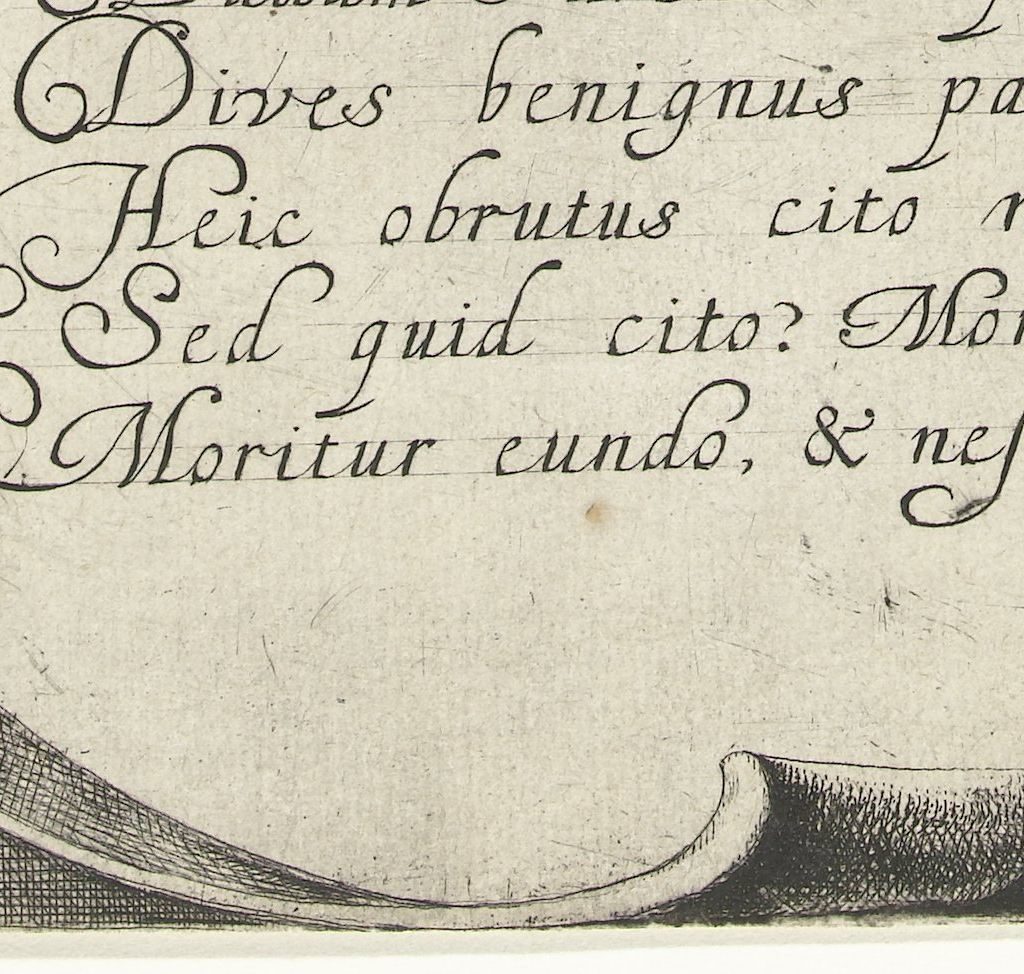 Dives benignus pa
Heic obrutus cito r
Sed quid cito? Mor
Moritur eundo, & neſ